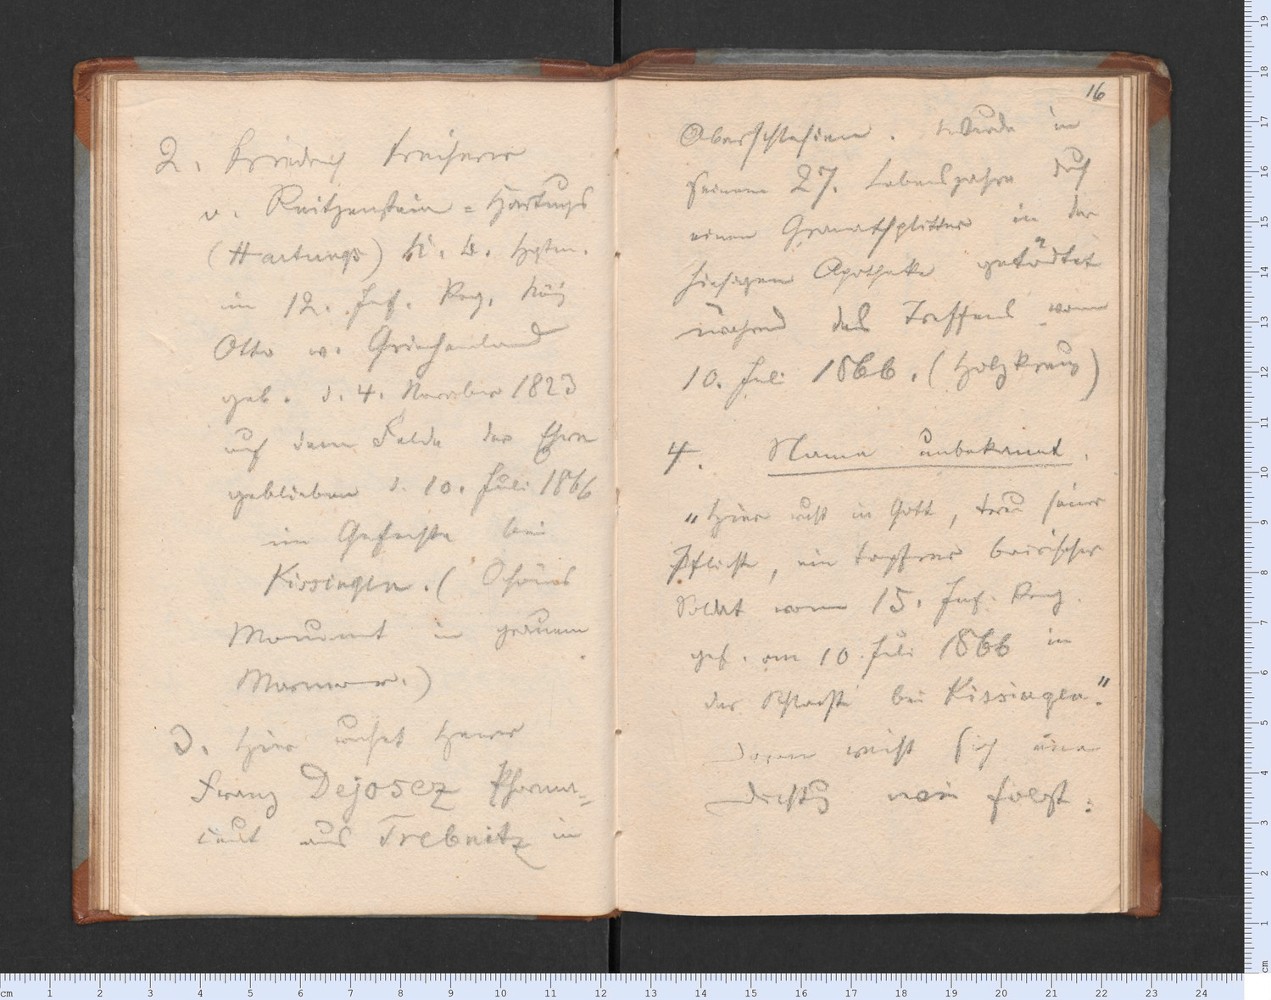 2. Friedrich Freiherr
v. Reitzenstein = Hartungs
(Hartungs) K. B. Hptm.
im 12. Inf. Reg. König
Otto v. Griechenland
geb. d. 4. November 1823
auf dem Felde der Ehre
geblieben d. 10. Juli 1866
im Gefechte bei
Kissingen. (Schönes
Monument in grauem
Marmor.)
3. Hier ruhet Herr
Franz Dejosez Pharma-
ceut aus Trebnitz in
16
Oberschlesien. Wurde in
seinem 27. Lebensjahre durch
einen Granatsplitter in der
hiesigen Apotheke getödtet
während des Treffens vom
10. Juli 1866. (Holzkreuz)
4. Name unbekannt.
"Hier ruht in Gott, treu seiner
Pflicht, ein tapferer bairischer
Soldat vom 15. Inf. Reg.
gef. am 10. Juli 1866 in
der Schlacht bei Kissingen."
Daran reiht sich eine
wie folgt: